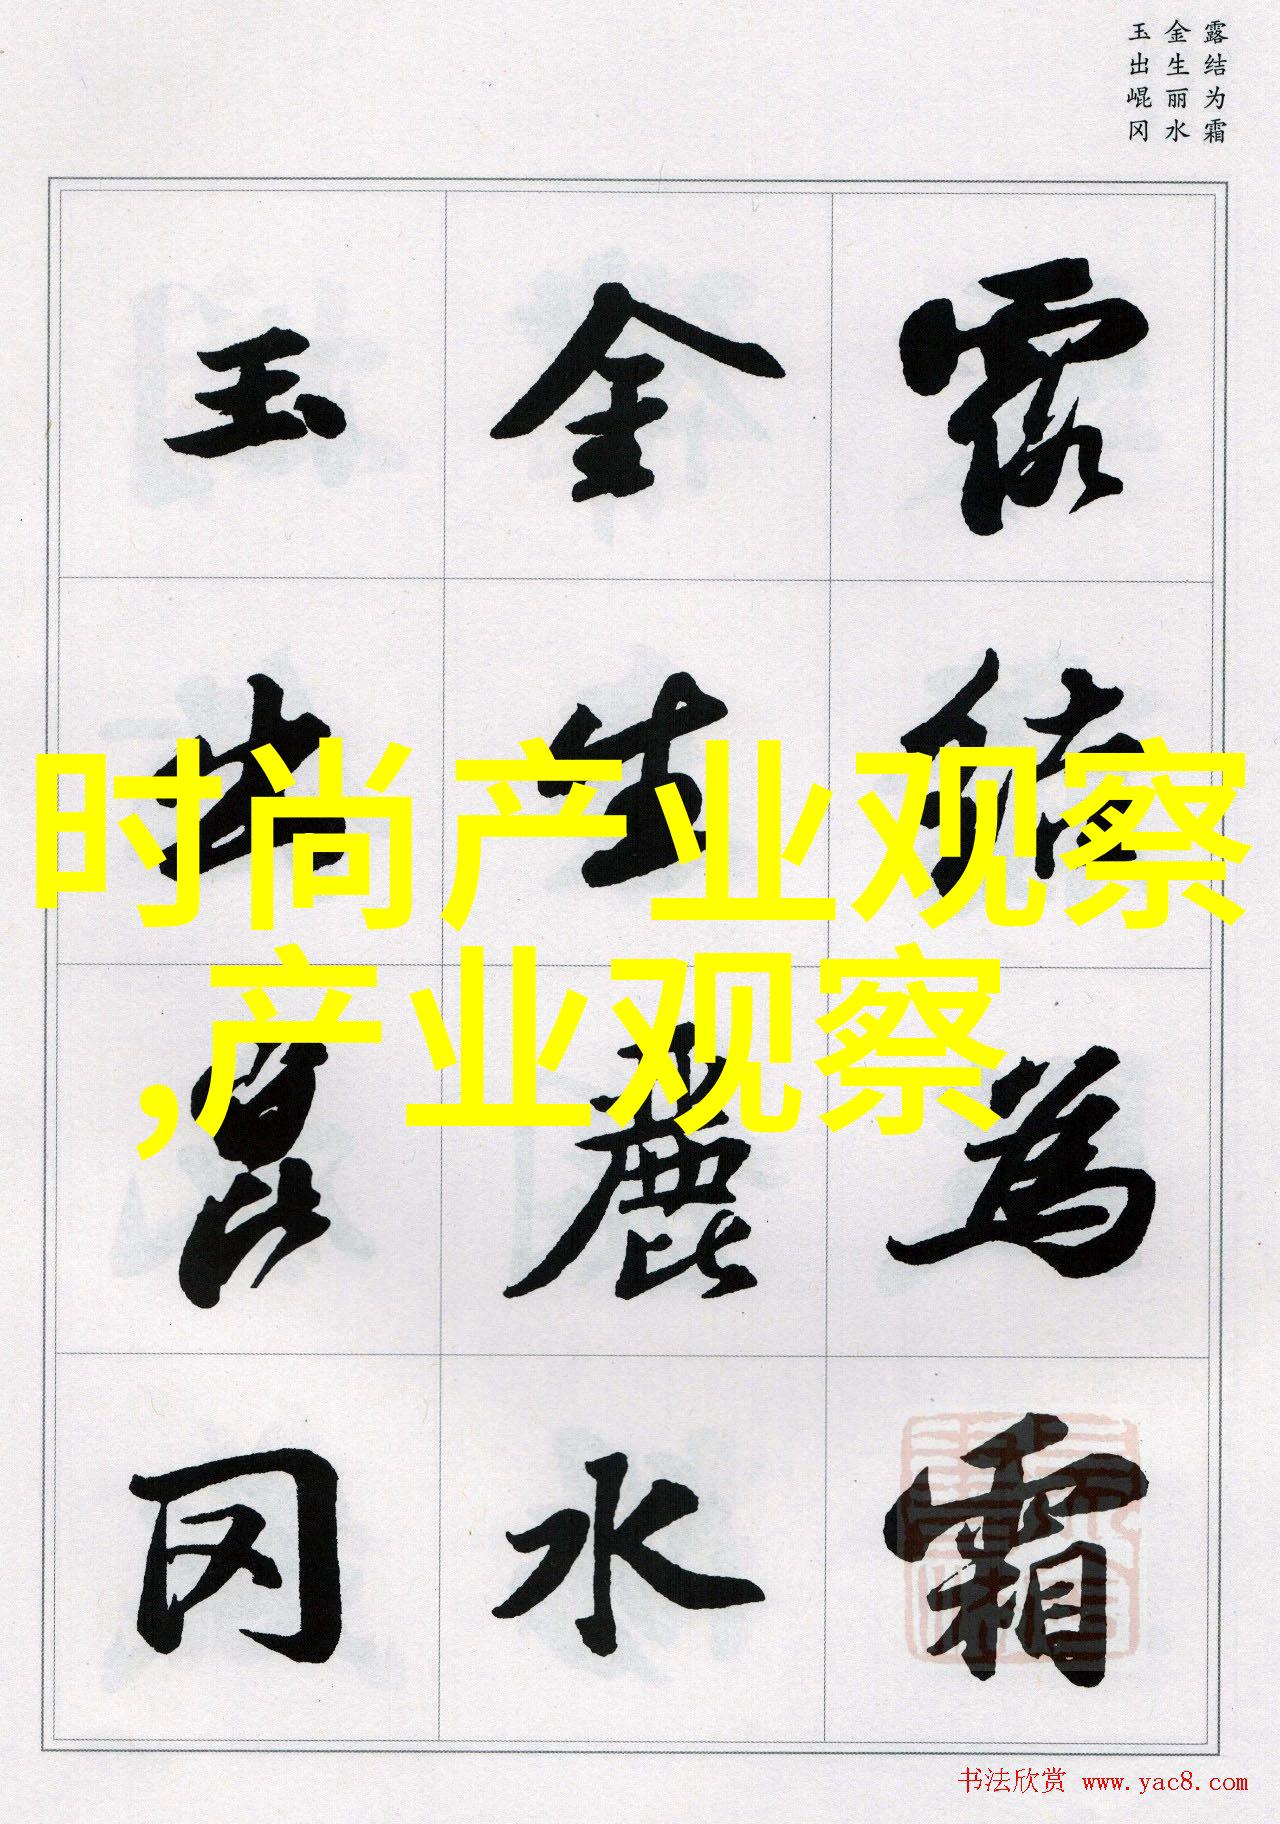 露结为霜
金生丽水
玉出崐冈
露結為霜
金生麗水
玉出崑冈
时尚产业观察
,产业观察
书法欣赏 www.yac8.com